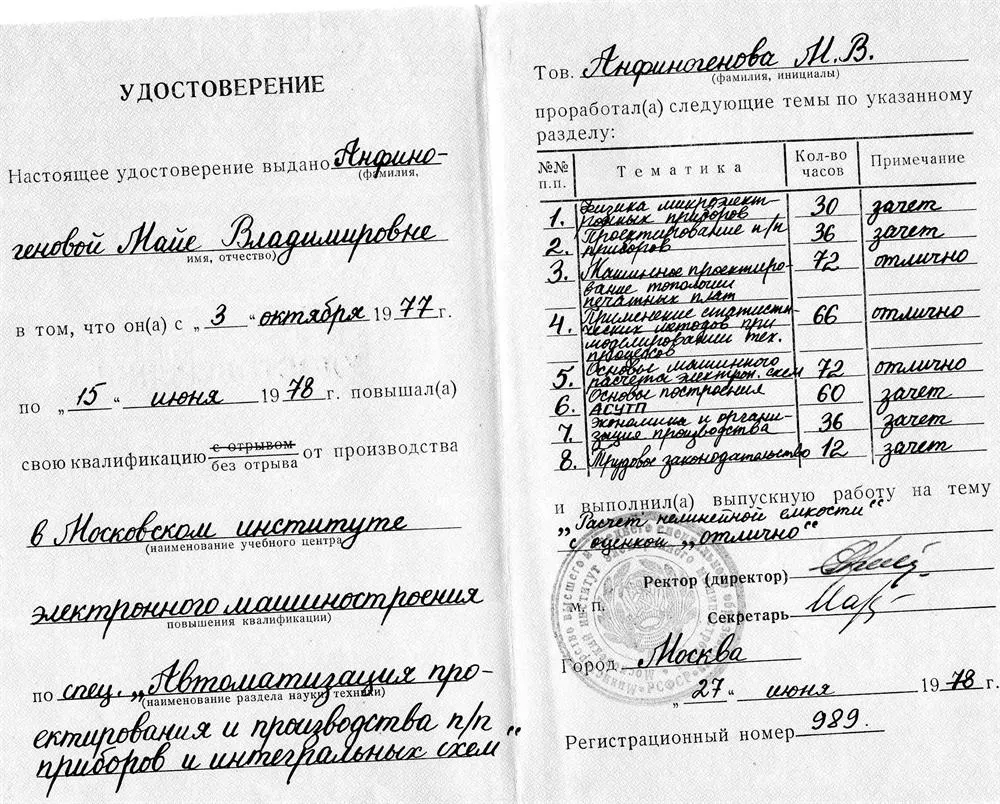 УДОСТОВЕРЕНИЕ
Настоящее удостоверение выдано Анфино-
(фамилия,
геновой Майе Владимировне
имя, отчество)
в том, что он(а) с „3“ октября 1977 г.
по „15“ июня 1978 г. повышал(а)
свою квалификацию с отрывом
без отрыва от производства
в Московском институте
(наименование учебного центра
электронного машиностроения
повышения квалификации)
по спец. „Автоматизация про-
(наименование раздела науки, техники)
ектирования и производства п/п
приборов и интегральных схем“
Тов. Анфиногенова М.В.
(фамилия, инициалы)
проработал(а) следующие темы по указанному
разделу:
№№ п.п. Тематика Кол-во часов Примечание
1. Физика микроэлект-
ронных приборов 30 зачет
2. Проектирование п/п
приборов 36 зачет
3. Машинное проектиро- 72 отлично
вание топологии
печатных плат
4. Применение статисти- 66 отлично
ческих методов при
моделировании тех.
процессов
5. Основы машинного
расчета электрон. схем 72 отлично
6. Основы построения 60 зачет
АСУТП
7. Экономика и органи- 36 зачет
зация производства
8. Трудовое законодательство 12 зачет
и выполнил(а) выпускную работу на тему
„Расчет нелинейной емкости“
с оценкой „отлично“
Ректор (директор)
М. П.
Секретарь
Город Москва
„27“ июня 1978 г.
Регистрационный номер 989.